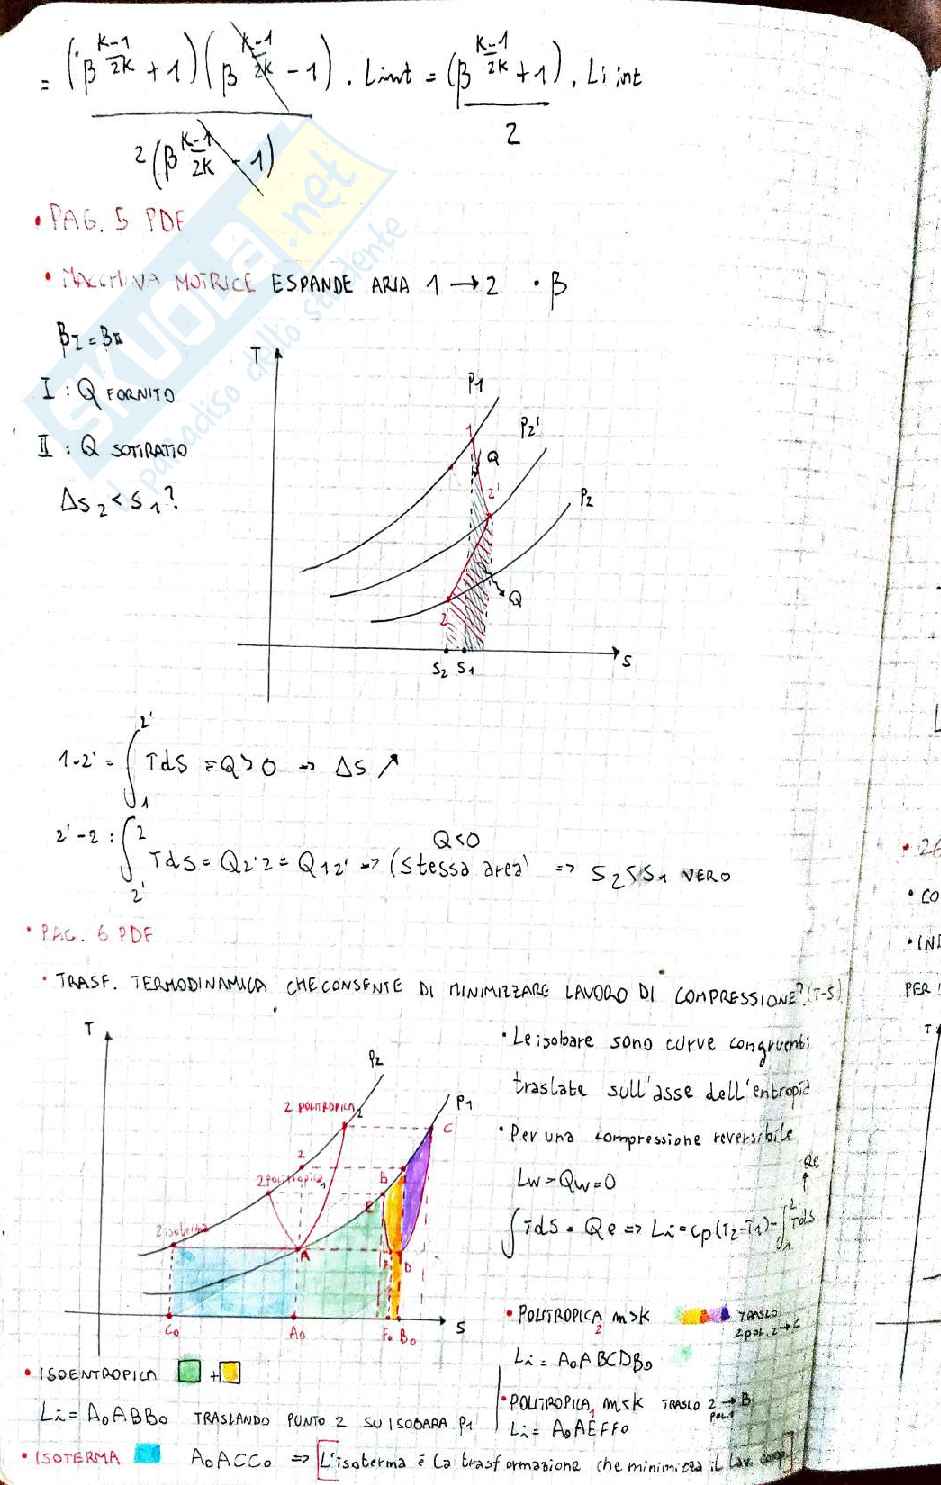 = (β^(K-1/2K) + 1)(β^(K-1/2K) - 1) / 2(β^(K-1/2K) - 1) . Lint = (β^(K-1/2K) + 1) / 2 . Li int
• PAG. 5 PDF
• MACCHINA MOTRICE ESPANDE ARIA 1 → 2 • β
βI = βII
I : Q FORNITO
II : Q SOTTRATTO
ΔS2 < S1 ?
T
P1
P2'
P2
1
Q
2'
Q
2
S2 S1
S
1-2' = ∫1 2' TdS = Q > 0 ⇒ ΔS ↗
2'-2 : ∫2' 2 TdS = Q2'2 = Q12' ⇒ (stessa area) Q<0 ⇒ S2 < S1 VERO
• PAG. 6 PDF
• TRASF. TERMODINAMICA CHE CONSENTE DI MINIMIZZARE LAVORO DI COMPRESSIONE? (T-S)
T
P2
P1
2 POLITROPICA2
C
2
B
2 politropica1
E
2 isoterma
A
F
D
C0
A0
F0
B0
S
• Le isobare sono curve congruenti
traslate sull'asse dell'entropia
• Per una compressione reversibile
Lw = Qw = 0
Qe
∫TdS = Qe ⇒ Li = cp(T2-T1) - ∫1 2 TdS
• POLITROPICA2 m>k TRASLO
2 pol. 2 → C
Li = A0ABCDB0
• POLITROPICA1 m<k TRASLO 2 pol1 → B
Li = A0AEFF0
• ISOENTROPICA +
Li = A0ABB0 TRASLANDO PUNTO 2 SU ISOBARA P1
• ISOTERMA A0ACC0 ⇒ [L'isoterma è la trasformazione che minimizza il lav. comp]
• CO
PER
T
SKUOLA.net
il paradiso dello studente